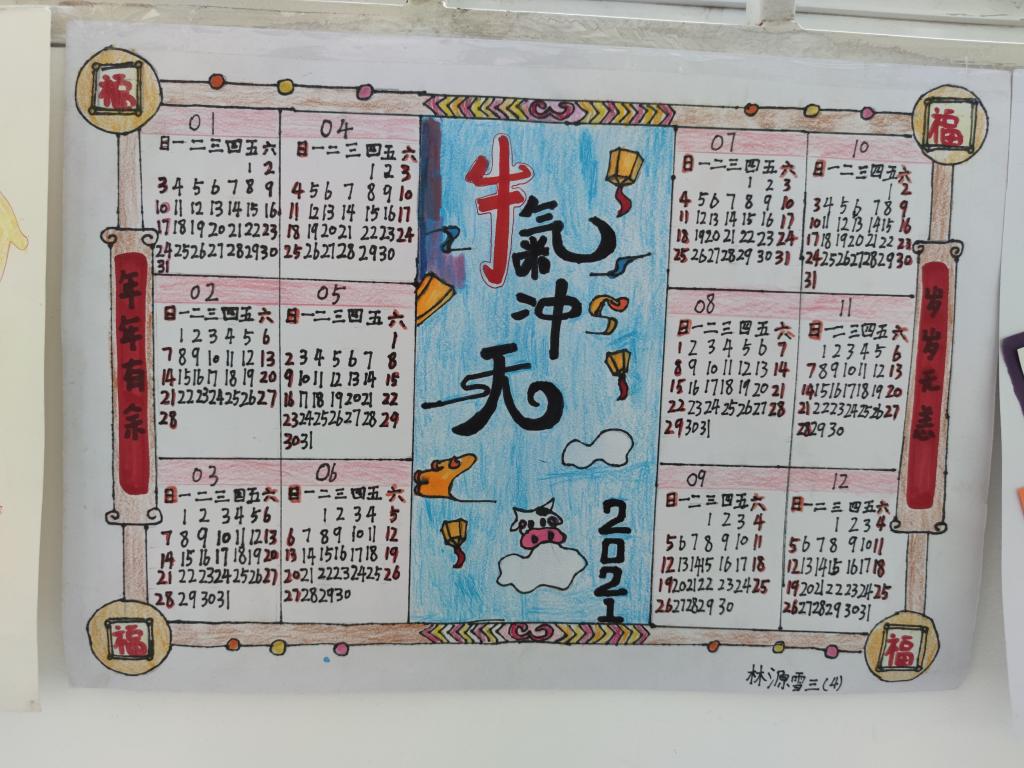 福
福
年年有余
01
日一二三四五六
1 2
3 4 5 6 7 8 9
10 11 12 13 14 15 16
17 18 19 20 21 22 23
24 25 26 27 28 29 30
31
04
日一二三四五六
1 2 3
4 5 6 7 8 9 10
11 12 13 14 15 16 17
18 19 20 21 22 23 24
25 26 27 28 29 30
02
日一二三四五六
1 2 3 4 5 6
7 8 9 10 11 12 13
14 15 16 17 18 19 20
21 22 23 24 25 26 27
28
05
日一二三四五六
1
2 3 4 5 6 7 8
9 10 11 12 13 14 15
16 17 18 19 20 21 22
23 24 25 26 27 28 29
30 31
03
日一二三四五六
1 2 3 4 5 6
7 8 9 10 11 12 13
14 15 16 17 18 19 20
21 22 23 24 25 26 27
28 29 30 31
06
日一二三四五六
1 2 3 4 5
6 7 8 9 10 11 12
13 14 15 16 17 18 19
20 21 22 23 24 25 26
27 28 29 30
牛氣冲天
2021
07
日一二三四五六
1 2 3
4 5 6 7 8 9 10
11 12 13 14 15 16 17
18 19 20 21 22 23 24
25 26 27 28 29 30 31
10
日一二三四五六
1 2
3 4 5 6 7 8 9
10 11 12 13 14 15 16
17 18 19 20 21 22 23
24 25 26 27 28 29 30
31
08
日一二三四五六
1 2 3 4 5 6 7
8 9 10 11 12 13 14
15 16 17 18 19 20 21
22 23 24 25 26 27 28
29 30 31
11
日一二三四五六
1 2 3 4 5 6
7 8 9 10 11 12 13
14 15 16 17 18 19 20
21 22 23 24 25 26 27
28 29 30
09
日一二三四五六
1 2 3 4
5 6 7 8 9 10 11
12 13 14 15 16 17 18
19 20 21 22 23 24 25
26 27 28 29 30
12
日一二三四五六
1 2 3 4
5 6 7 8 9 10 11
12 13 14 15 16 17 18
19 20 21 22 23 24 25
26 27 28 29 30 31
岁岁无恙
福
福
林源雪三(4)